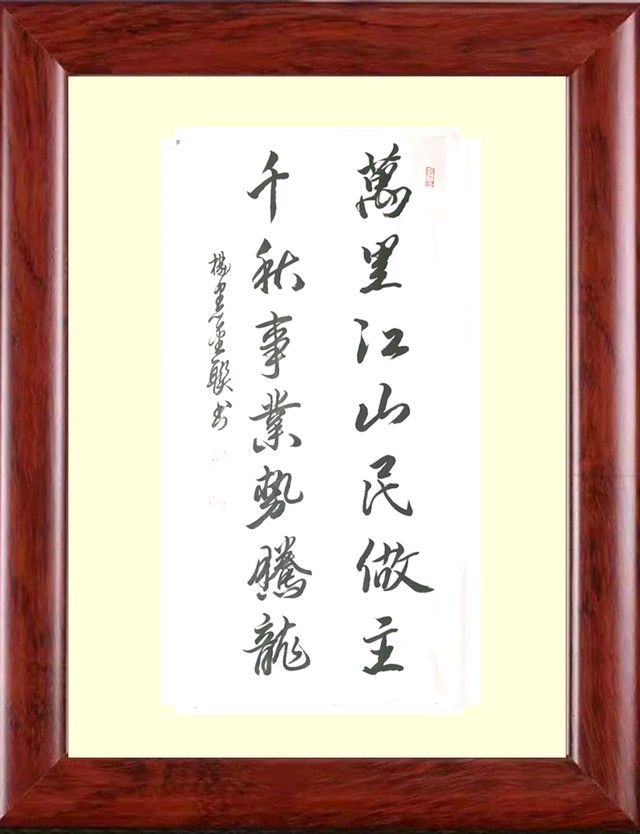 萬里江山民做主
千秋事業勢騰龍
楊 聯书